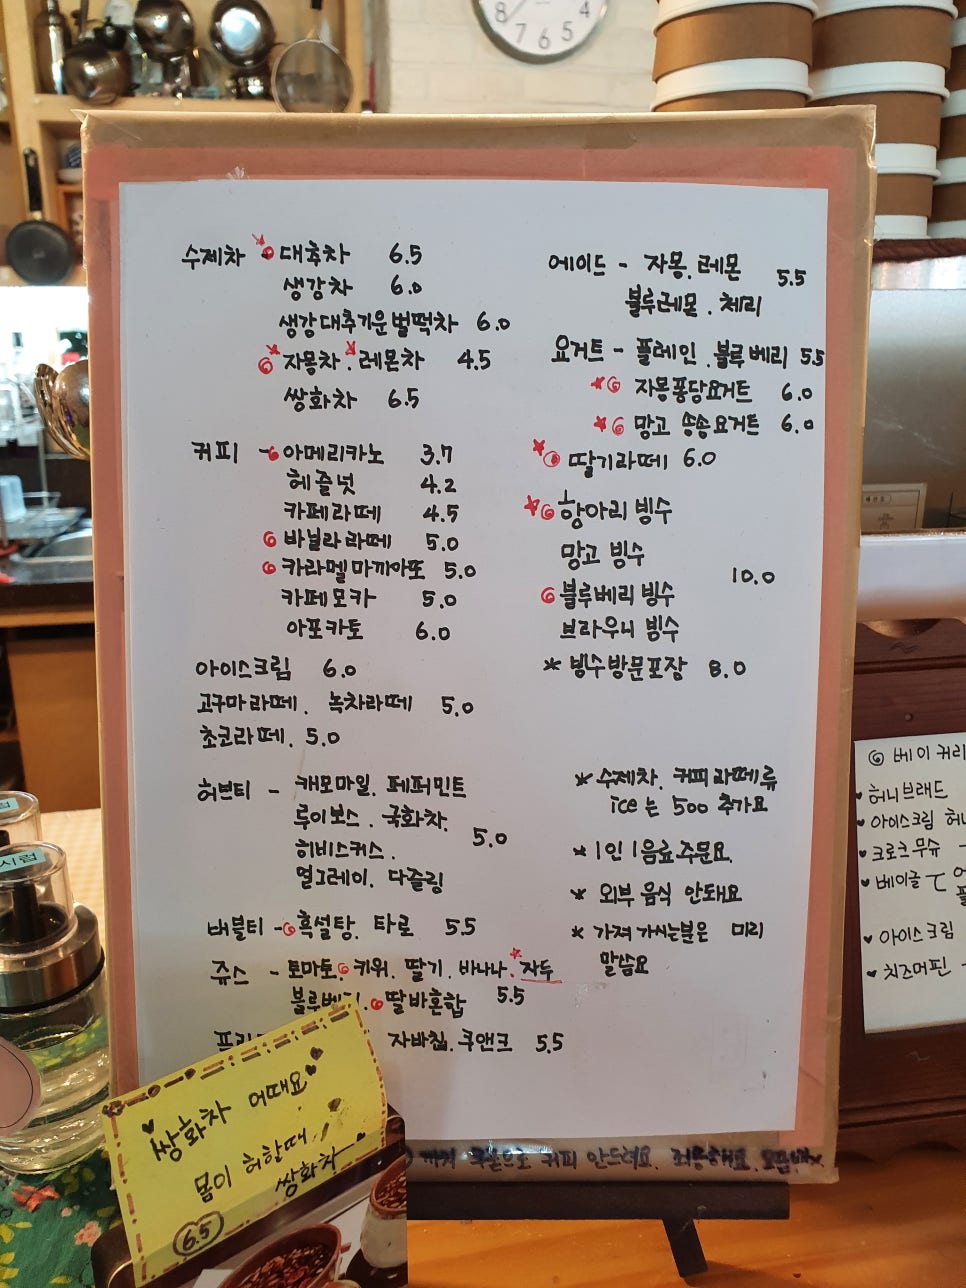 8 7 6 5 4
수제차 대추차 6.5
생강차 6.0
생강대추기운벌떡차 6.0
자몽차. 레몬차 4.5
쌍화차 6.5
커피 - 아메리카노 3.7
헤즐넛 4.2
카페라떼 4.5
바닐라라떼 5.0
카라멜마끼아또 5.0
카페모카 5.0
아포카토 6.0
아이스크림 6.0
고구마라떼. 녹차라떼 5.0
초코라떼. 5.0
허브티 - 캐모마일. 페퍼민트
루이보스. 국화차.
히비스커스. 5.0
얼그레이. 다즐링
버블티 - 흑설탕. 타로 5.5
쥬스 - 토마토. 키위. 딸기. 바나나. 자두
블루베리. 딸바혼합 5.5
자바칩. 쿠앤크 5.5
에이드 - 자몽. 레몬 5.5
블루레몬. 체리
요거트 - 플레인. 블루베리 5.5
자몽퐁당요거트 6.0
망고 송송요거트 6.0
딸기라떼 6.0
항아리 빙수
망고 빙수
10.0
블루베리 빙수
브라우니 빙수
* 빙수방문포장 8.0
* 수제차. 커피라떼류
ice는 500 추가요
* 1인 1음료주문요.
* 외부 음식 안돼요
* 가져가시는분은 미리
말씀요
쌍화차 어때요
몸이 허할때
쌍화차
6.5
커피 안드려요.
베이커리
허니브래드
아이스크림
크로크무슈 -
베이글
아이스크림
치즈머핀 -
시럽